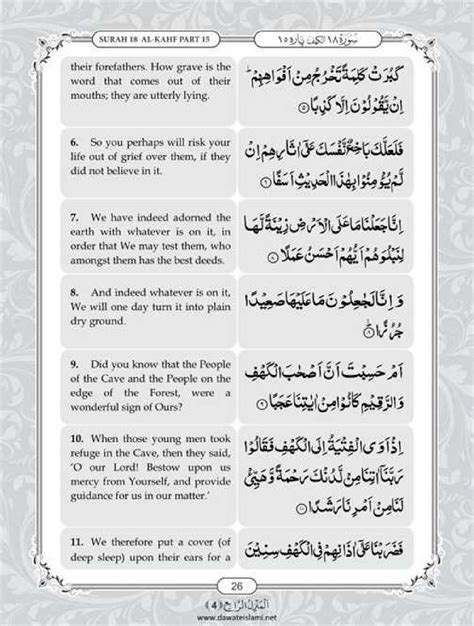 SURAH 18 AL-KAHF PART 15
سُوْرَۃ ١٨ الکھف پارہ ١٥
their forefathers. How grave is the
word that comes out of their
mouths; they are utterly lying.
كَبُرَتْ كَلِمَةً تَخْرُجُ مِنْ اَفْوَاهِهِمْ ؕ
اِنْ يَّقُوْلُوْنَ اِلَّا كَذِبًا ۝۵
6. So you perhaps will risk your
life out of grief over them, if they
did not believe in it.
فَلَعَلَّكَ بَاخِعٌ نَّفْسَكَ عَلٰۤى اٰثَارِهِمْ اِنْ
لَّمْ يُؤْمِنُوْا بِهٰذَا الْحَدِيْثِ اَسَفًا ۝۶
7. We have indeed adorned the
earth with whatever is on it, in
order that We may test them, who
amongst them has the best deeds.
اِنَّا جَعَلْنَا مَا عَلَى الْاَرْضِ زِيْنَةً لَّهَا
لِنَبْلُوَهُمْ اَيُّهُمْ اَحْسَنُ عَمَلًا ۝۷
8. And indeed whatever is on it,
We will one day turn it into plain
dry ground.
وَ اِنَّا لَجٰعِلُوْنَ مَا عَلَيْهَا صَعِيْدًا
جُرُزًا ؕ۝۸
9. Did you know that the People
of the Cave and the People on the
edge of the Forest, were a
wonderful sign of Ours?
اَمْ حَسِبْتَ اَنَّ اَصْحٰبَ الْكَهْفِ
وَ الرَّقِيْمِ ۙ كَانُوْا مِنْ اٰيٰتِنَا عَجَبًا ۝۹
10. When those young men took
refuge in the Cave, then they said,
‘O our Lord! Bestow upon us
mercy from Yourself, and provide
guidance for us in our matter.’
اِذْ اَوَى الْفِتْيَةُ اِلَى الْكَهْفِ فَقَالُوْا
رَبَّنَاۤ اٰتِنَا مِنْ لَّدُنْكَ رَحْمَةً وَّ هَيِّئْ
لَنَا مِنْ اَمْرِنَا رَشَدًا ۝۱۰
11. We therefore put a cover (of
deep sleep) upon their ears for a
فَضَرَبْنَا عَلٰۤى اٰذَانِهِمْ فِی الْكَهْفِ سِنِيْنَ
26
اَلْمَنْزِلُ الرَّابِع ﴿4﴾
www.dawateislami.net